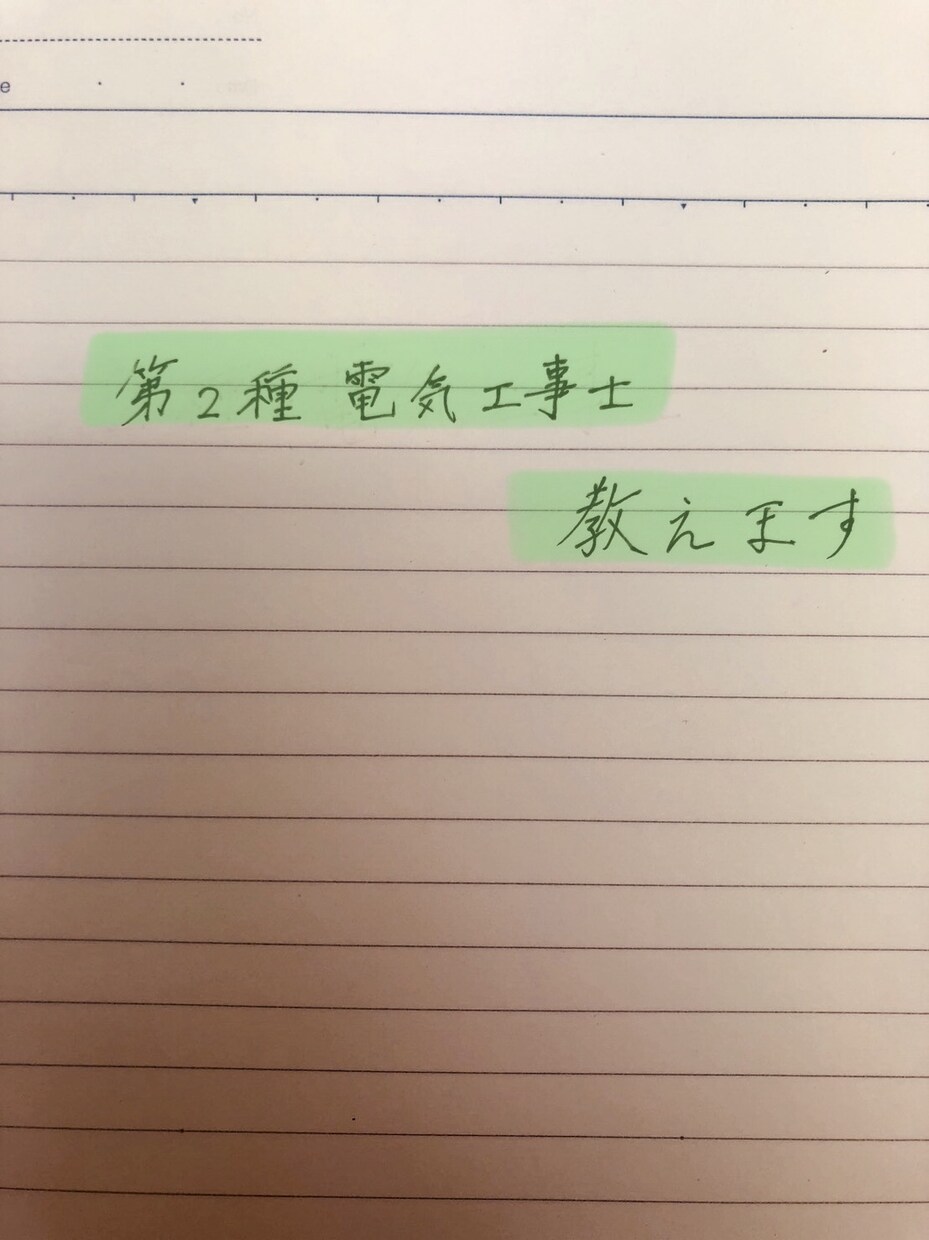 e
第2種 電気工事士
教えます